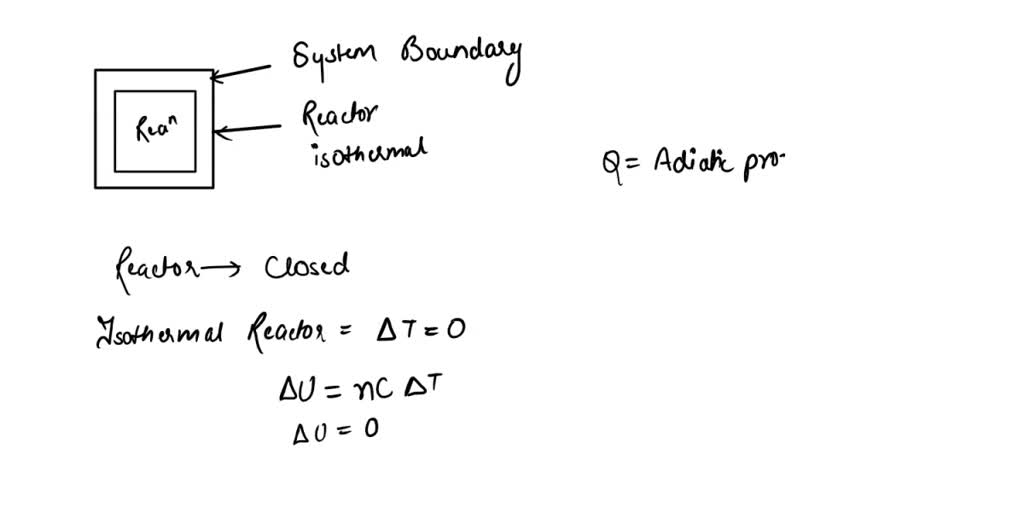 System Boundary
Reaⁿ
Reactor
isothermal
Q = Adiatic pro
Reactor → Closed
Isothermal Reactor = ΔT = 0
ΔU = nC ΔT
ΔU = 0